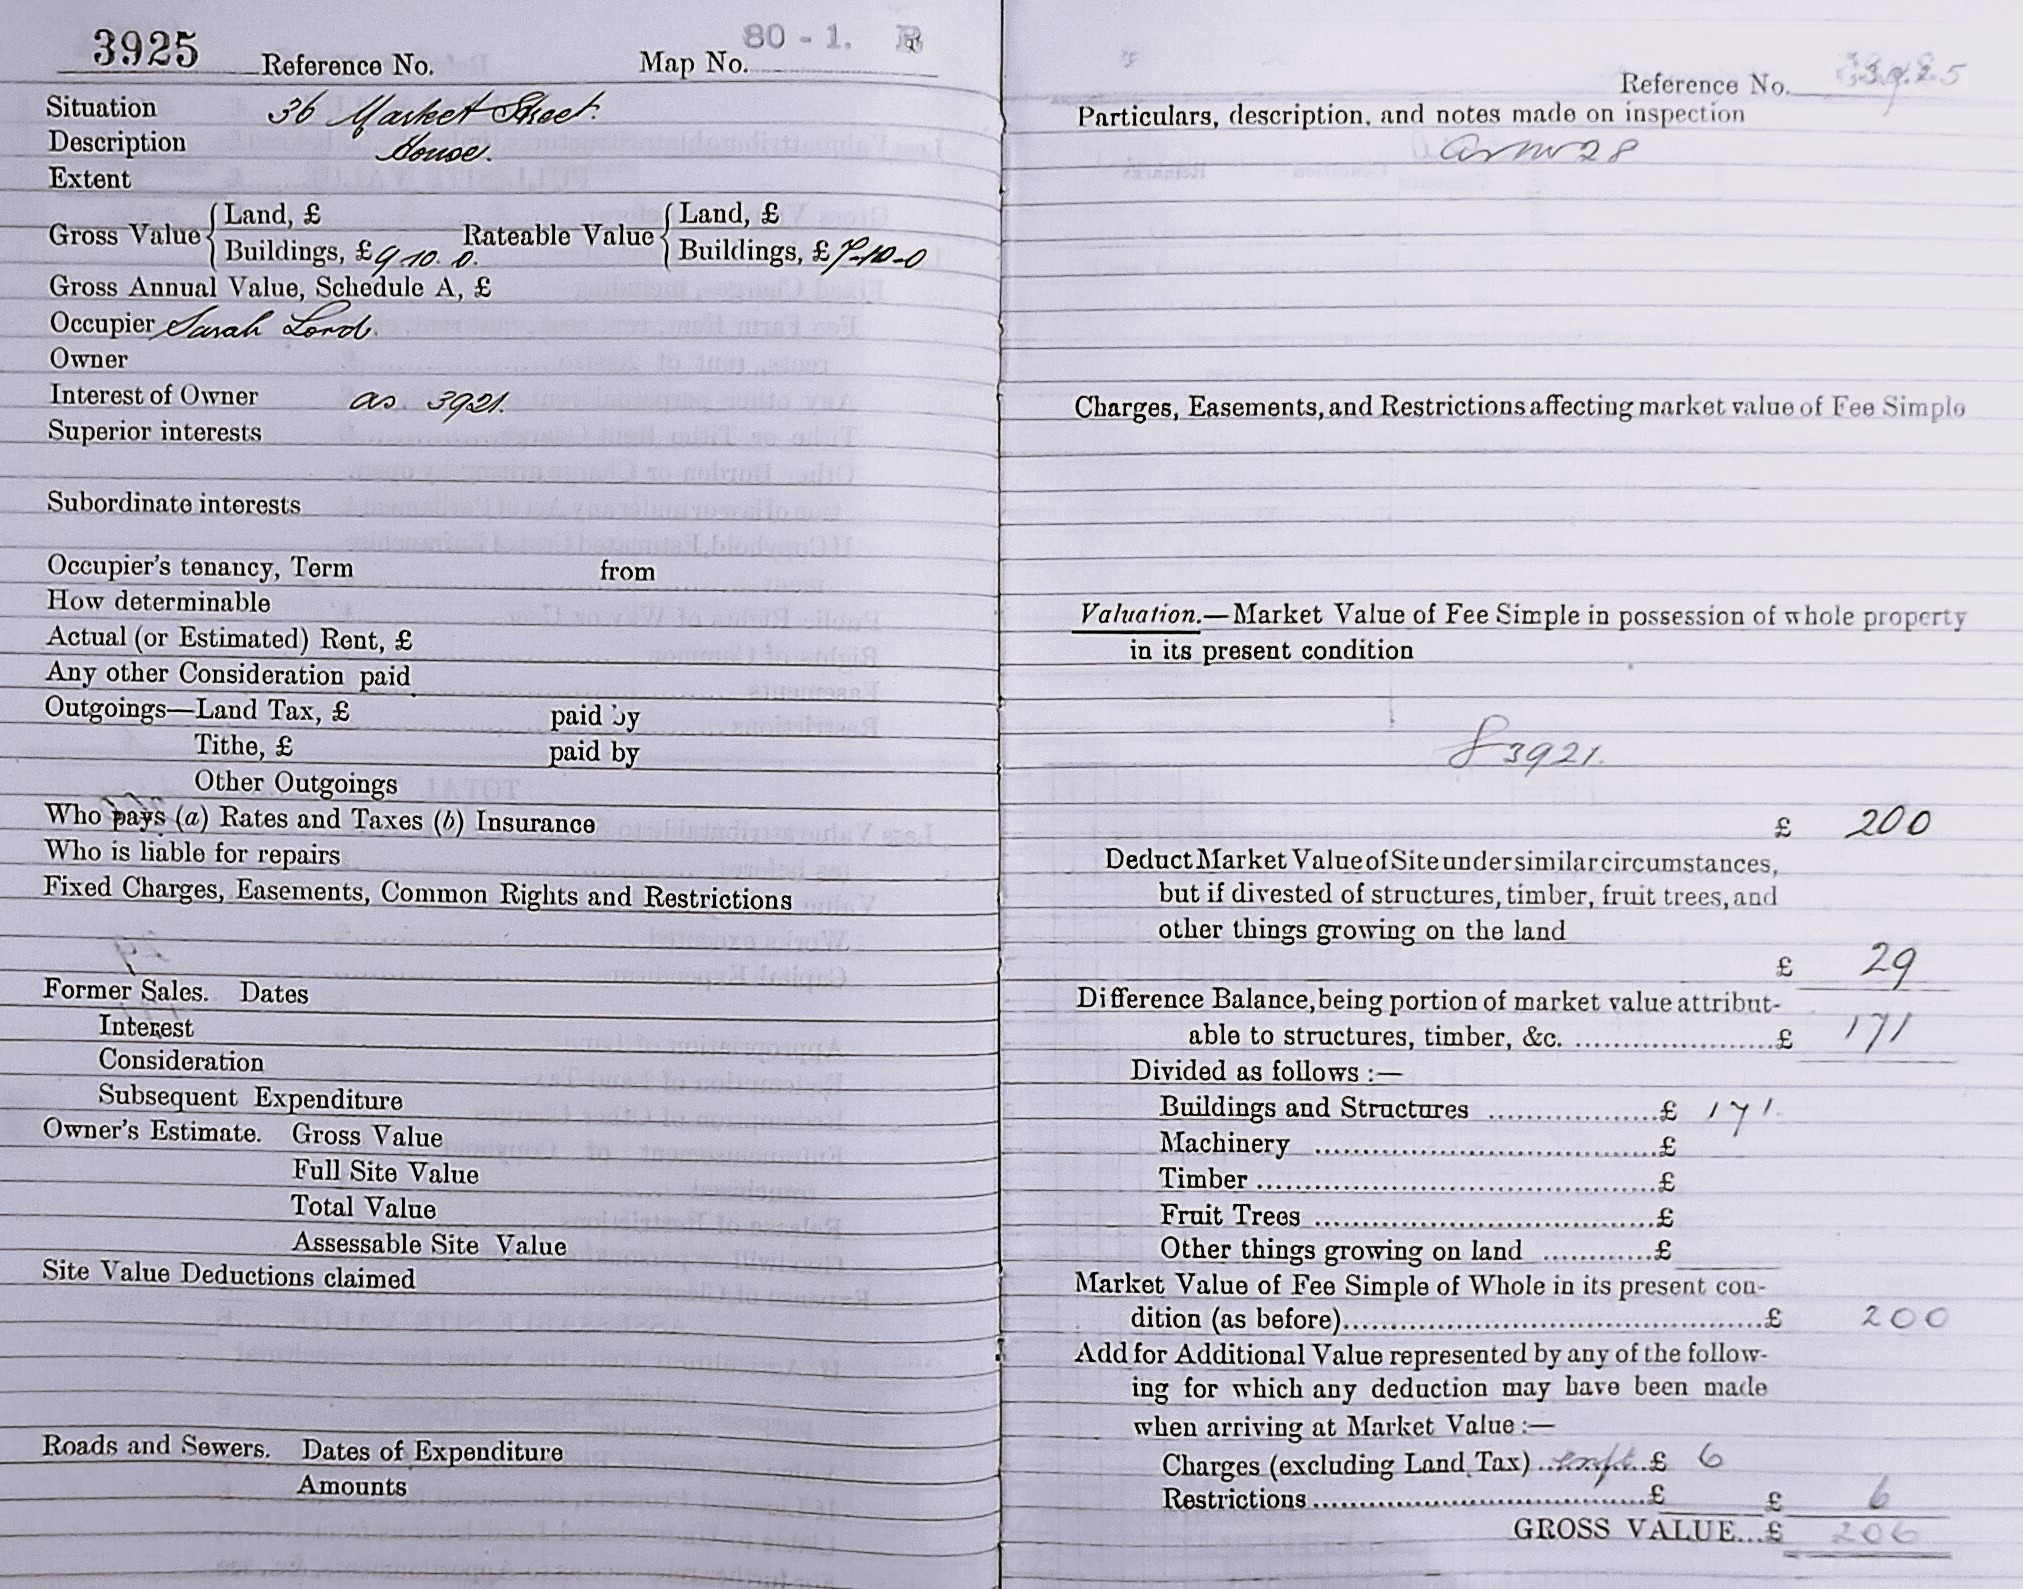 3925 Reference No. Map No. 80 - 1.
Situation 36 Market Street.
Description House.
Extent
Gross Value { Land, £ Rateable Value { Land, £
Buildings, £ 9.10.0. Buildings, £ 7-10-0
Gross Annual Value, Schedule A, £
Occupier Sarah Lord.
Owner
Interest of Owner as 3921.
Superior interests
Subordinate interests
Occupier's tenancy, Term from
How determinable
Actual (or Estimated) Rent, £
Any other Consideration paid
Outgoings—Land Tax, £ paid by
Tithe, £ paid by
Other Outgoings
Who pays (a) Rates and Taxes (b) Insurance
Who is liable for repairs
Fixed Charges, Easements, Common Rights and Restrictions
Former Sales. Dates
Interest
Consideration
Subsequent Expenditure
Owner's Estimate. Gross Value
Full Site Value
Total Value
Assessable Site Value
Site Value Deductions claimed
Roads and Sewers. Dates of Expenditure
Amounts
Reference No. 3925
Particulars, description, and notes made on inspection
Charges, Easements, and Restrictions affecting market value of Fee Simple
Valuation.—Market Value of Fee Simple in possession of whole property
in its present condition
3921.
£ 200
Deduct Market Value of Site under similar circumstances,
but if divested of structures, timber, fruit trees, and
other things growing on the land
£ 29
Difference Balance, being portion of market value attribut-
able to structures, timber, &c. ..................... £ 171
Divided as follows :—
Buildings and Structures ................. £ 171.
Machinery ................................... £
Timber ......................................... £
Fruit Trees ................................... £
Other things growing on land ........... £
Market Value of Fee Simple of Whole in its present con-
dition (as before)........................................... £ 200
Add for Additional Value represented by any of the follow-
ing for which any deduction may have been made
when arriving at Market Value :—
Charges (excluding Land Tax) .. £ 6
Restrictions ................................... £ £ 6
GROSS VALUE... £ 206